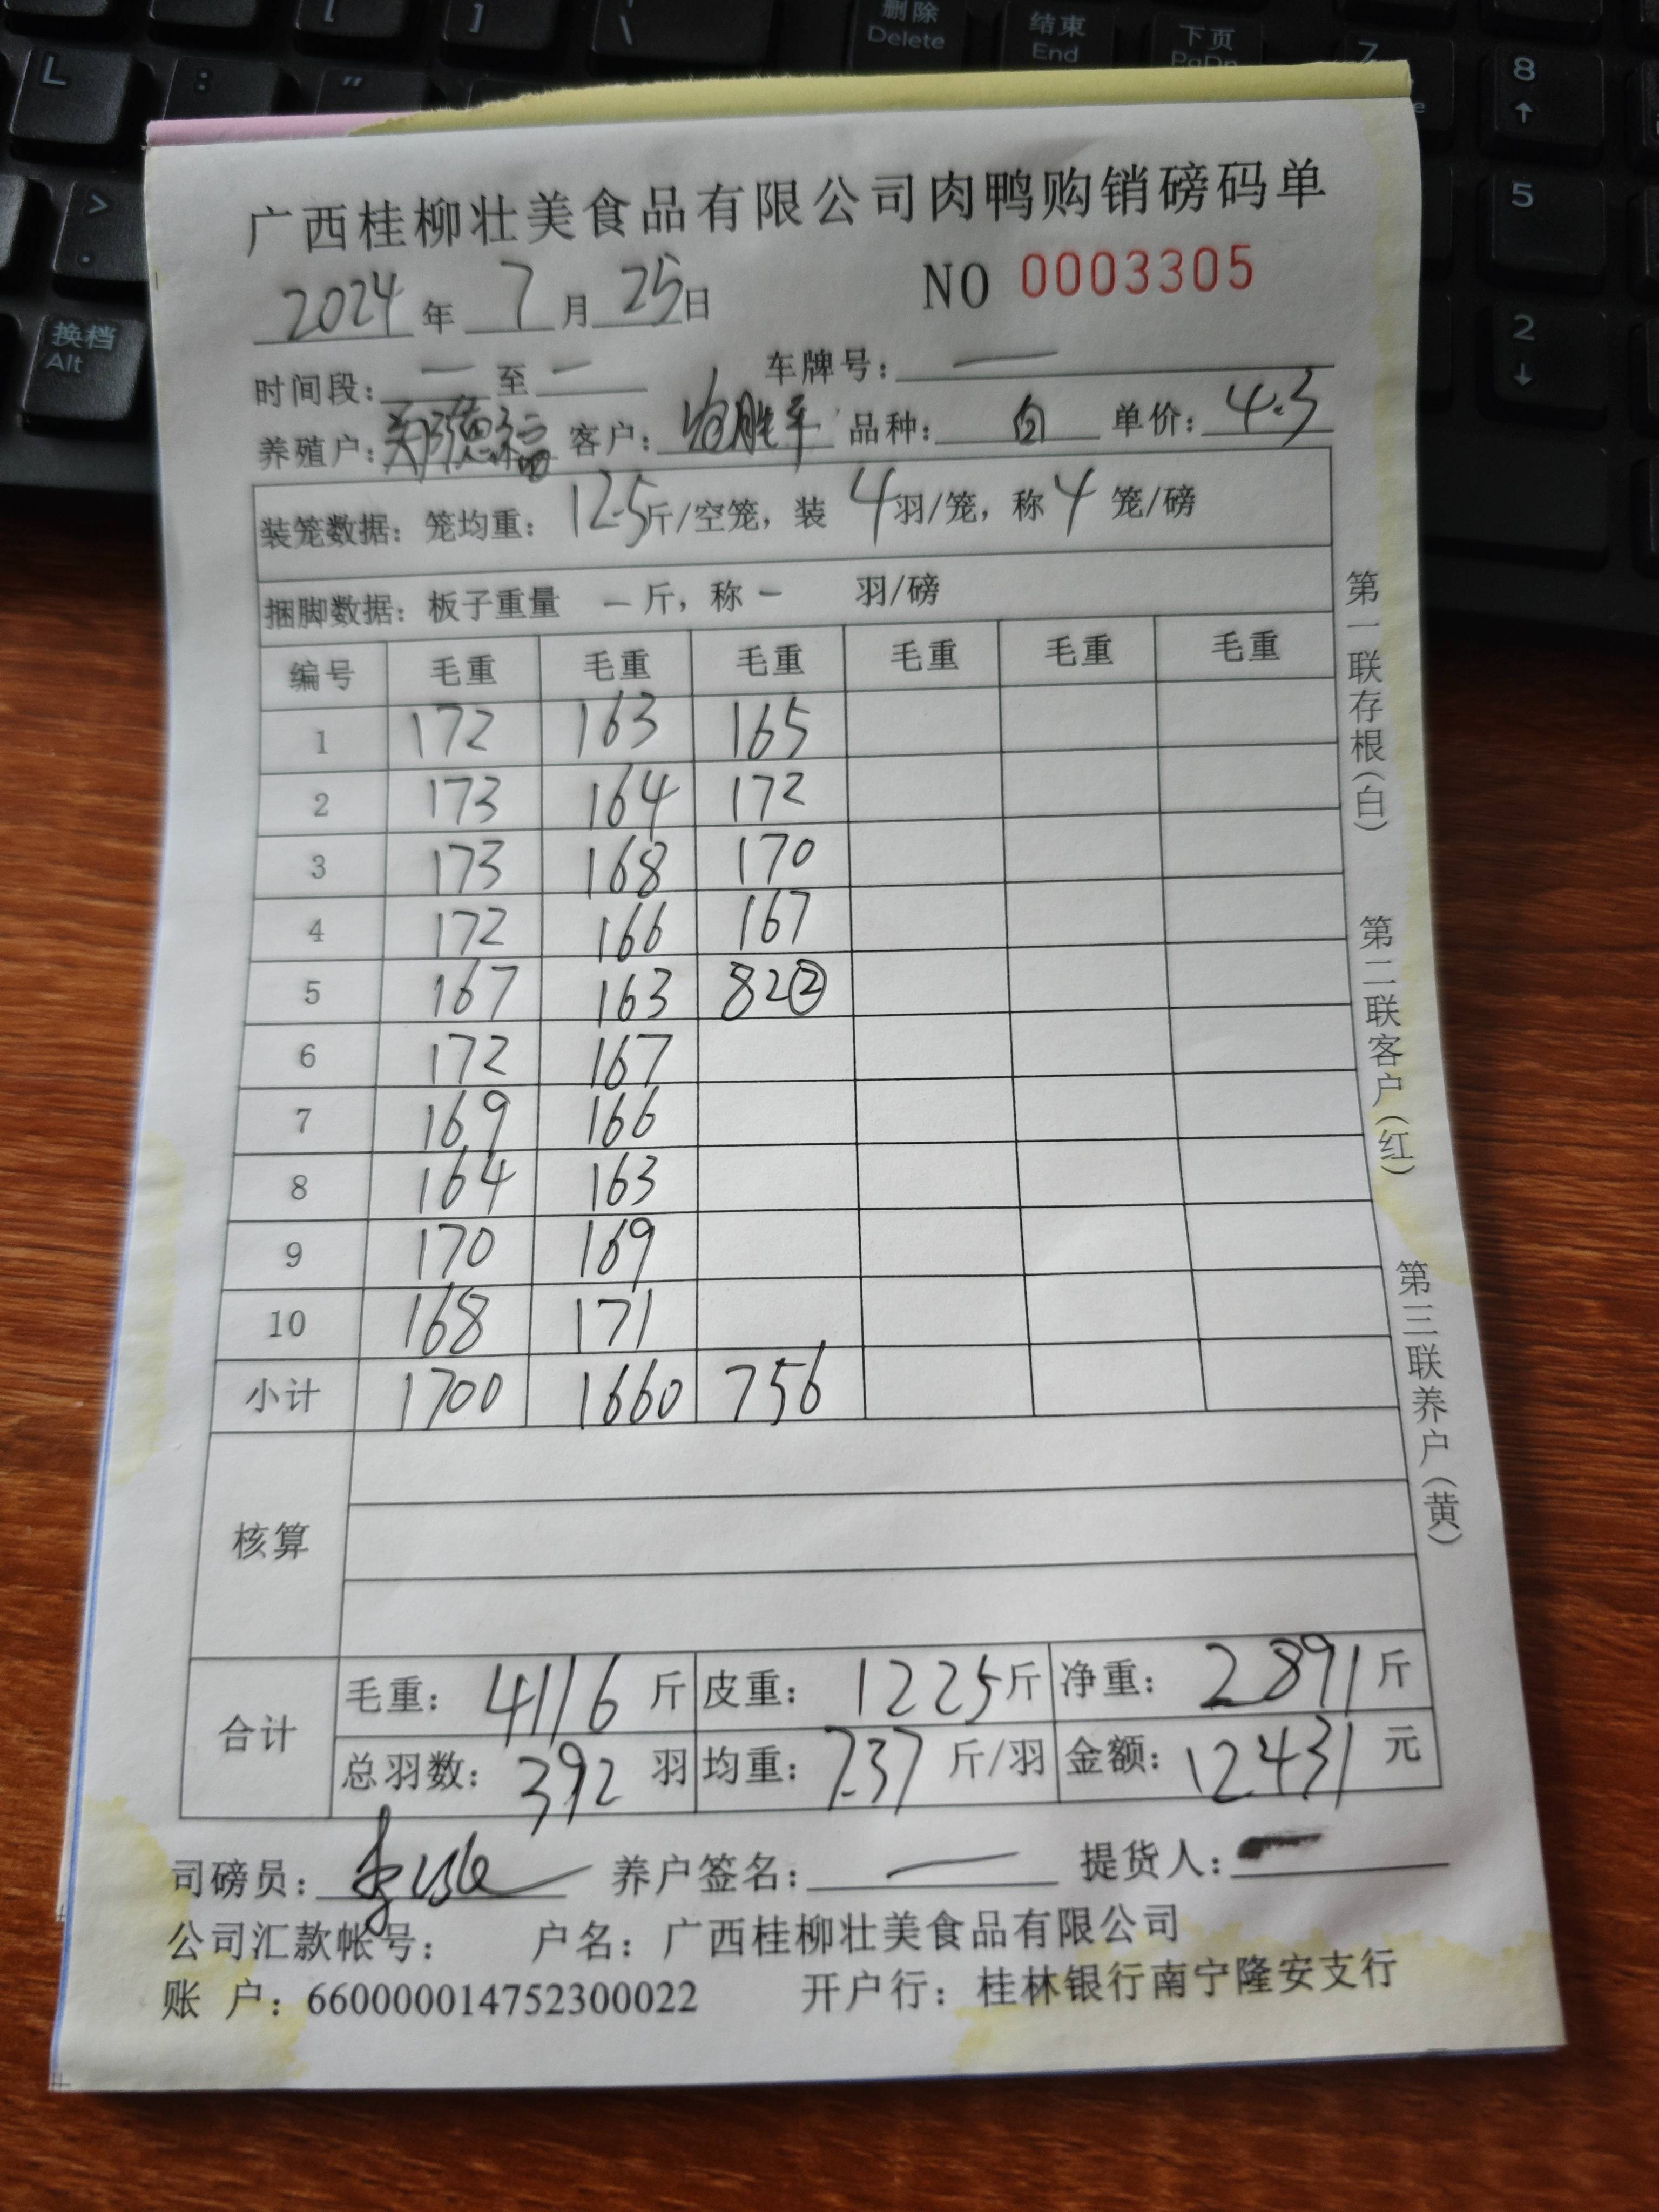 删除
Delete
结束
End
下页
PgDn
[
]
\
7
8
L
:
"
>
.
5
换档
Alt
2
广西桂柳壮美食品有限公司肉鸭购销磅码单
2024年7月25日 NO 0003305
时间段:一至一 车牌号:一
养殖户:郑德福 客户:胜平 品种:白 单价:4.3
装笼数据:笼均重:12.5斤/空笼,装4羽/笼,称4笼/磅
捆脚数据:板子重量 一斤,称一 羽/磅
编号 毛重 毛重 毛重 毛重 毛重 毛重
1 172 163 165
2 173 164 172
3 173 168 170
4 172 166 167
5 167 163 82②
6 172 167
7 169 166
8 164 163
9 170 169
10 168 171
小计 1700 1660 756
核算
合计
毛重:4116斤 皮重:1225斤 净重:2891斤
总羽数:392羽 均重:7.37斤/羽 金额:12431元
司磅员: 养户签名:一 提货人:
公司汇款帐号: 户名:广西桂柳壮美食品有限公司
账 户:660000014752300022 开户行:桂林银行南宁隆安支行
第一联存根(白)
第二联客户(红)
第三联养户(黄)